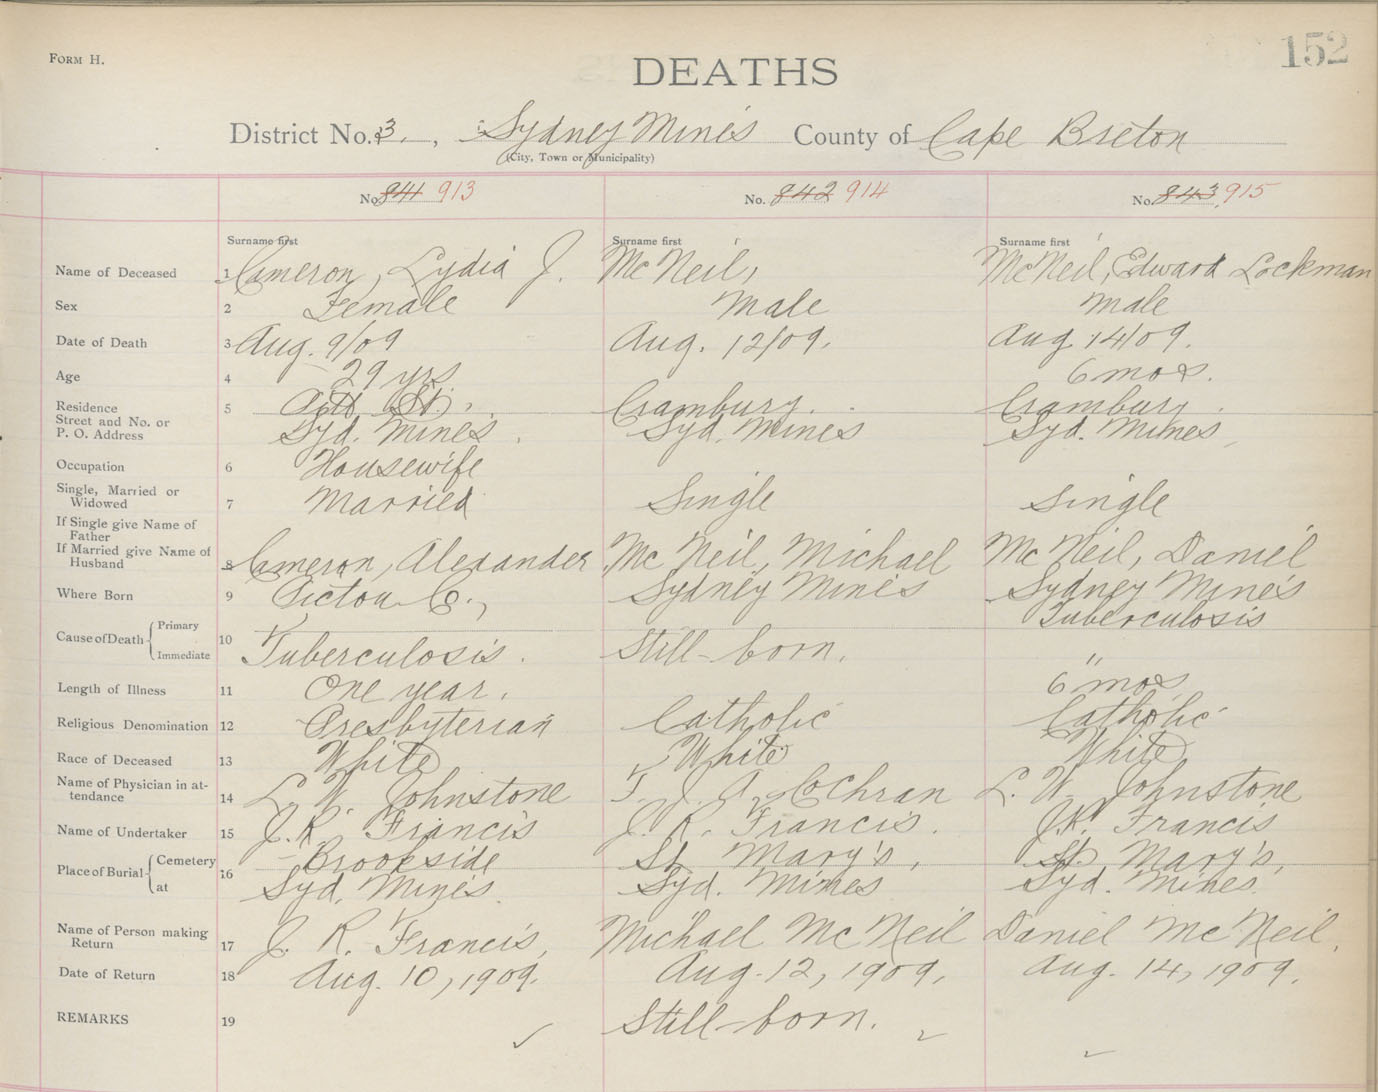 FORM H.
152
DEATHS
District No. 3, Sydney Mines County of Cape Breton
(City, Town or Municipality)
No. 841 913 No. 842 914 No. 843 915
Surname first Surname first Surname first
Name of Deceased 1 Cameron, Lydia J. McNeil, McNeil, Edward Lockman
Sex 2 Female Male Male
Date of Death 3 Aug. 9/09 Aug. 12/09. Aug 14/09.
Age 4 29 yrs 6 mos.
Residence 5 St. Crambury. Crambury.
Street and No. or
P. O. Address Syd. Mines. Syd. Mines Syd. Mines,
Occupation 6 Housewife
Single, Married or
Widowed 7 Married Single Single
If Single give Name of
Father
If Married give Name of
Husband 8 Cameron, Alexander Mc Neil, Michael Mc Neil, Daniel
Where Born 9 Pictou C., Sydney Mines Sydney Mines
Cause of Death Primary Tuberculosis
10
Immediate Tuberculosis. Still-born. "
Length of Illness 11 One year. 6 mos
Religious Denomination 12 Presbyterian Catholic Catholic
Race of Deceased 13 White White White
Name of Physician in at-
tendance 14 L. W. Johnstone T. J. A. Cochran L. W. Johnstone
Name of Undertaker 15 J. R. Francis J. R. Francis. J. R. Francis
Place of Burial Cemetery 16 Brookside St. Mary's, St. Mary's,
at Syd. Mines. Syd. Mines Syd. Mines.
Name of Person making
Return 17 J. R. Francis, Michael Mc Neil Daniel Mc Neil,
Date of Return 18 Aug. 10, 1909. Aug. 12, 1909, Aug. 14, 1909.
REMARKS 19 Still-born.